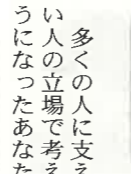 多くの人に支え
い人の立場で考え
うになったあなた